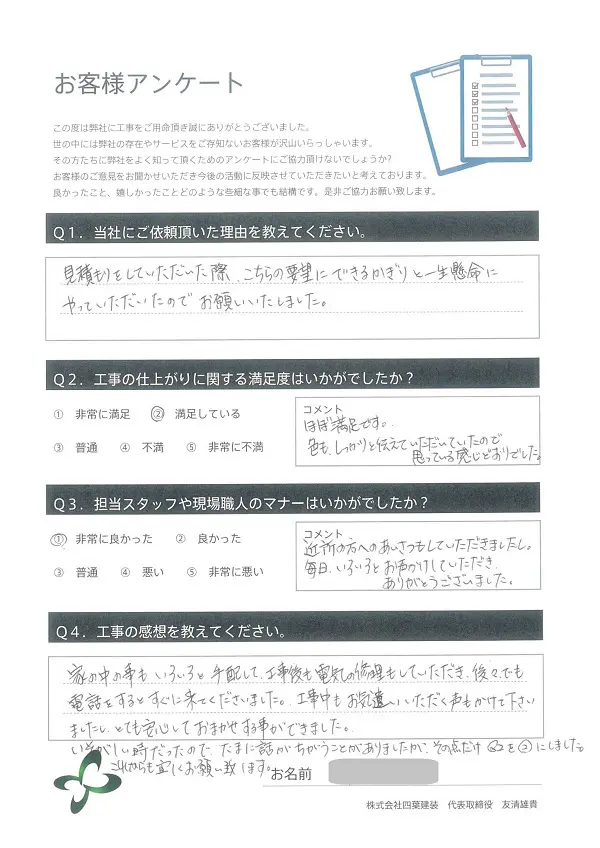 お客様アンケート
この度は弊社に工事をご用命頂き誠にありがとうございました。
世の中には弊社の存在やサービスをご存知ないお客様が沢山いらっしゃいます。
その方たちに弊社をよく知って頂くためのアンケートにご協力頂けないでしょうか?
お客様のご意見をお聞かせいただき今後の活動に反映させていただきたいと考えております。
良かったこと、嬉しかったことどのような些細な事でも結構です。是非ご協力お願い致します。
Q1．当社にご依頼頂いた理由を教えてください。
見積もりをしていただいた際、こちらの要望にできるかぎりと一生懸命に
やっていただいたのでお願いいたしました。
Q2．工事の仕上がりに関する満足度はいかがでしたか？
① 非常に満足 ② 満足している
③ 普通 ④ 不満 ⑤ 非常に不満
コメント
ほぼ満足です。
色も、しっかりと伝えていただいていたので
思っている感じどおりでした。
Q3．担当スタッフや現場職人のマナーはいかがでしたか？
① 非常に良かった ② 良かった
③ 普通 ④ 悪い ⑤ 非常に悪い
コメント
近所の方へのあいさつもしていただきましたし。
毎日、いろいろとお声かけしていただき
ありがとうございました。
Q4．工事の感想を教えてください。
家の中の事も いろいろと 手配して、工事後も電気の修理もしていただき、後々でも
電話をするとすぐに来てくださいました。工事中もお気遣いいただく声もかけて下さい
ましたし、とても安心しておまかせする事ができました。
いそがしい時だったので、たまに話がちがうことがありましたが、その点だけ Q2を②にしました。
これからも宜しくお願い致します。
お名前
株式会社四葉建装 代表取締役 友清雄貴